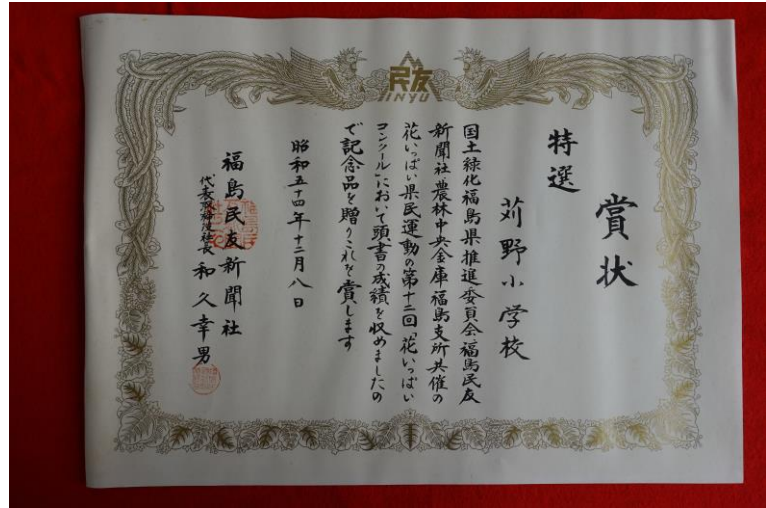 民友
MINYU
賞状
特選
苅野小学校
国土緑化福島県推進委員会福島民友
新聞社農林中央金庫福島支所共催の
花いっぱい県民運動の第十二回「花いっぱい
コンクール」において頭書の成績を収めましたの
で記念品を贈りこれを賞します
昭和五十四年十二月八日
福島民友新聞社
代表取締役社長 和久幸男